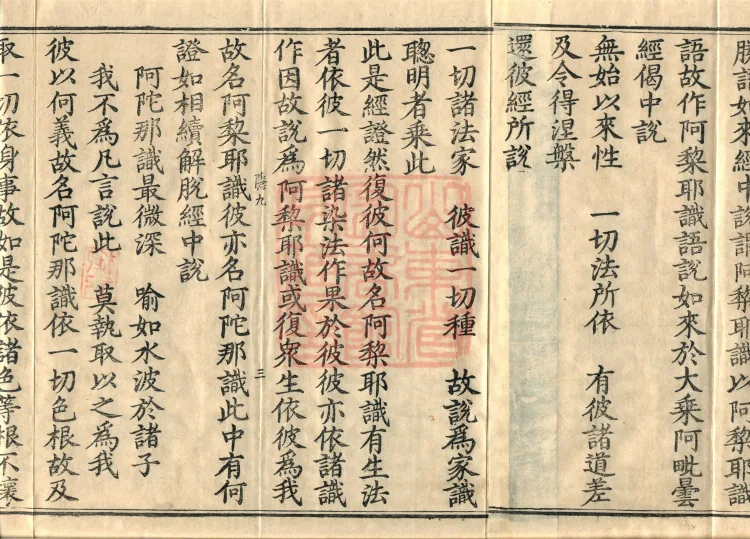 勝語如來經中說謂阿黎耶識以阿黎耶識
語故作阿黎耶識語說如來於大乘阿毗曇
經偈中說
無始以來性　一切法所依　有彼諸道差
及令得涅槃
還彼經所說
一切諸法家　彼識一切種　故說爲家識
聰明者乘此
此是經證然復彼何故名阿黎耶識有生法
者依彼一切諸染法作果於彼彼亦依諸識
作因故說爲阿黎耶識或復衆生依彼爲我
九　三
故名阿黎耶識彼亦名阿陀那識此中有何
證如相續解脫經中說
阿陀那識最微深　喻如水波於諸子
我不爲凡言說此　莫執取以之爲我
彼以何義故名阿陀那識依一切色根故及
取一切依身事故如是彼依諸色等根不壞